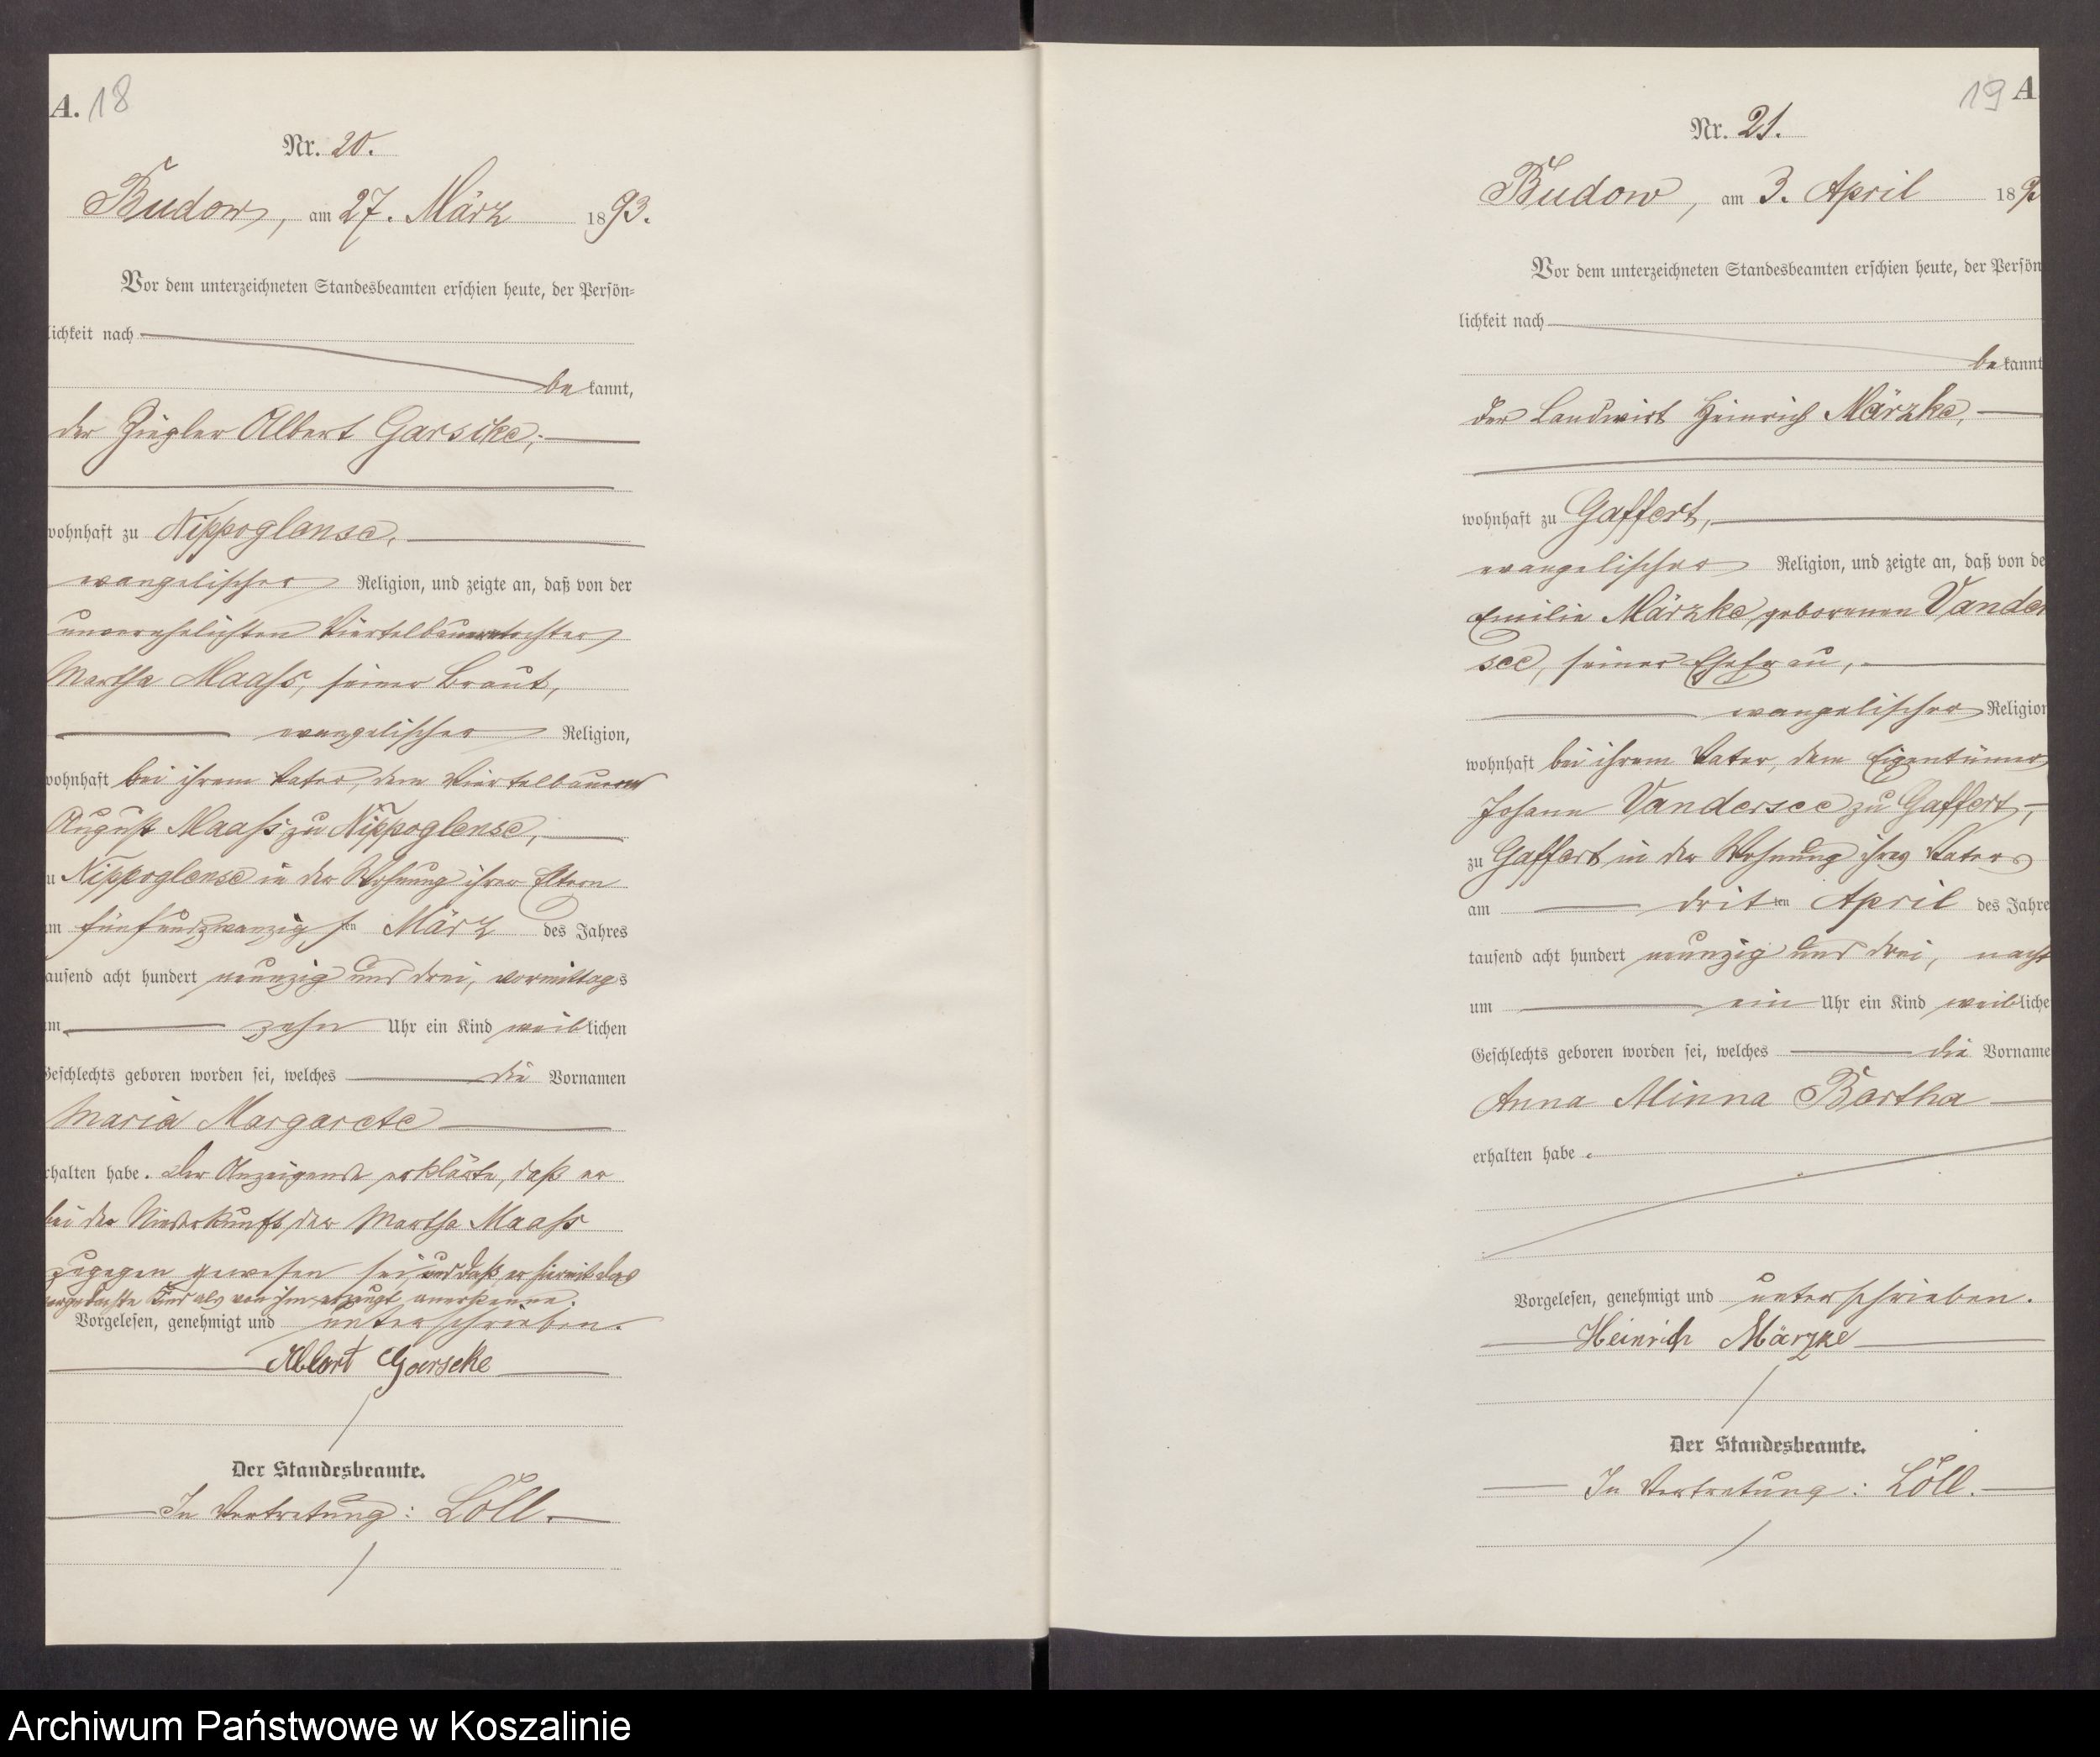 A. 18
Nr. 20.
Budow, am 27. März 1893.
Vor dem unterzeichneten Standesbeamten erschien heute, der Persön-
lichkeit nach
be kannt,
der Ziegler Albert Garscke,
wohnhaft zu Nippoglense,
evangelischer Religion, und zeigte an, daß von der
unverehelichten Viertelbauerntochter
Martha Maaß, seiner Braut,
evangelischer Religion,
wohnhaft bei ihrem Vater, dem Viertelbauern
August Maaß zu Nippoglense,
u Nippoglense in der Wohnung ihrer Eltern
m fünfundzwanzigsten März des Jahres
ausend acht hundert neunzig und drei, vormittags
um zehn Uhr ein Kind weiblichen
Geschlechts geboren worden sei, welches die Vornamen
Maria Margarete
rhalten habe. Der Anzeigende erklärte, daß er
bei der Niederkunft der Martha Maaß
zugegen gewesen sei, und daß er hiermit das
vorgedachte Kind als von ihm erzeugt anerkenne.
Vorgelesen, genehmigt und unterschrieben.
Albert Garscke
Der Standesbeamte.
In Vertretung: Löll.
19 A
Nr. 21.
Budow, am 3. April 189
Vor dem unterzeichneten Standesbeamten erschien heute, der Persön
lichkeit nach
be kannt
der Landwirt Heinrich Märzke,
wohnhaft zu Gaffert,
evangelischer Religion, und zeigte an, daß von de
Emilie Märzke geborenen Vander
see, seiner Ehefrau,
evangelischer Religion
wohnhaft bei ihrem Vater, dem Eigentümer
Johann Vandersee zu Gaffert,
zu Gaffert in der Wohnung ihres Vaters
am dritten April des Jahre
tausend acht hundert neunzig und drei, nachts
um ein Uhr ein Kind weibliche
Geschlechts geboren worden sei, welches die Vorname
Anna Minna Bertha
erhalten habe.
Vorgelesen, genehmigt und unterschrieben.
Heinrich Märzke
Der Standesbeamte.
In Vertretung: Löll.
Archiwum Państwowe w Koszalinie